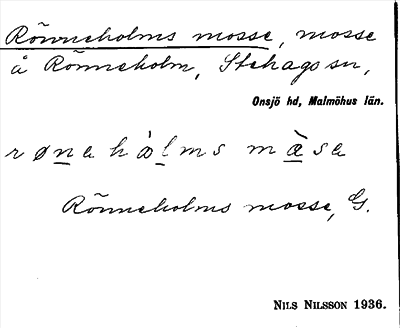 Rönneholms mosse, mosse
å Rönneholm, Stehags sn,
Onsjö hd, Malmöhus län.
rønehòlms màse
Rönneholms mosse, G.
NILS NILSSON 1936.